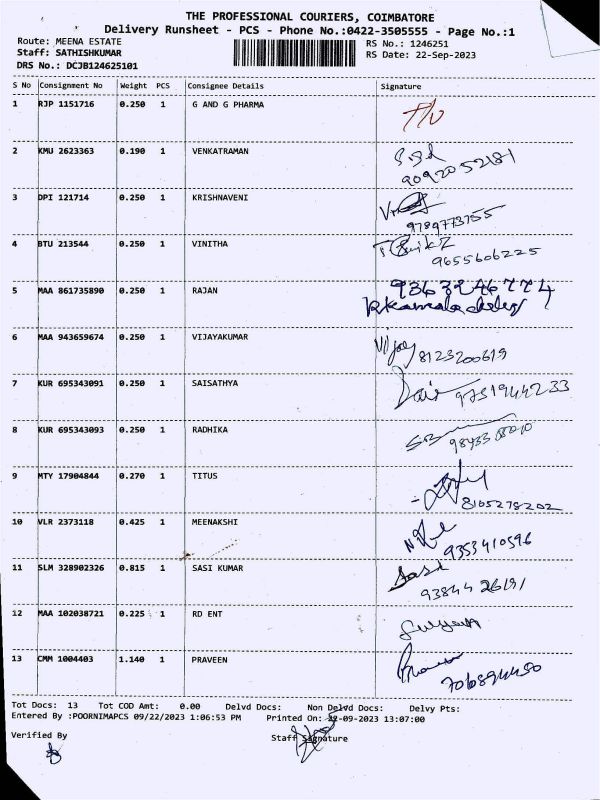 THE PROFESSIONAL COURIERS, COIMBATORE
Delivery Runsheet - PCS - Phone No.:0422-3505555 - Page No.:1
Route: MEENA ESTATE RS No.: 1246251
Staff: SATHISHKUMAR RS Date: 22-Sep-2023
DRS No.: DCJB124625101
S No Consignment No Weight PCS Consignee Details Signature
1 RJP 1151716 0.250 1 G AND G PHARMA
2 KMU 2623363 0.190 1 VENKATRAMAN
9092052181
3 DPI 121714 0.250 1 KRISHNAVENI
9789773755
4 BTU 213544 0.250 1 VINITHA
9655606225
5 MAA 861735890 0.250 1 RAJAN 9363246774
6 MAA 943659674 0.250 1 VIJAYAKUMAR Vijay
8123200619
7 KUR 695343091 0.250 1 SAISATHYA
9751944233
8 KUR 695343093 0.250 1 RADHIKA
9 MTY 17904844 0.270 1 TITUS
8105278202
10 VLR 2373118 0.425 1 MEENAKSHI
9353410596
11 SLM 328902326 0.815 1 SASI KUMAR Sasi
9384426191
12 MAA 102038721 0.225 1 RD ENT
13 CMM 1004403 1.140 1 PRAVEEN
706894450
Tot Docs: 13 Tot COD Amt: 0.00 Delvd Docs: Non Delvd Docs: Delvy Pts:
Entered By :POORNIMAPCS 09/22/2023 1:06:53 PM Printed On: 22-09-2023 13:07:00
Verified By Staff Signature